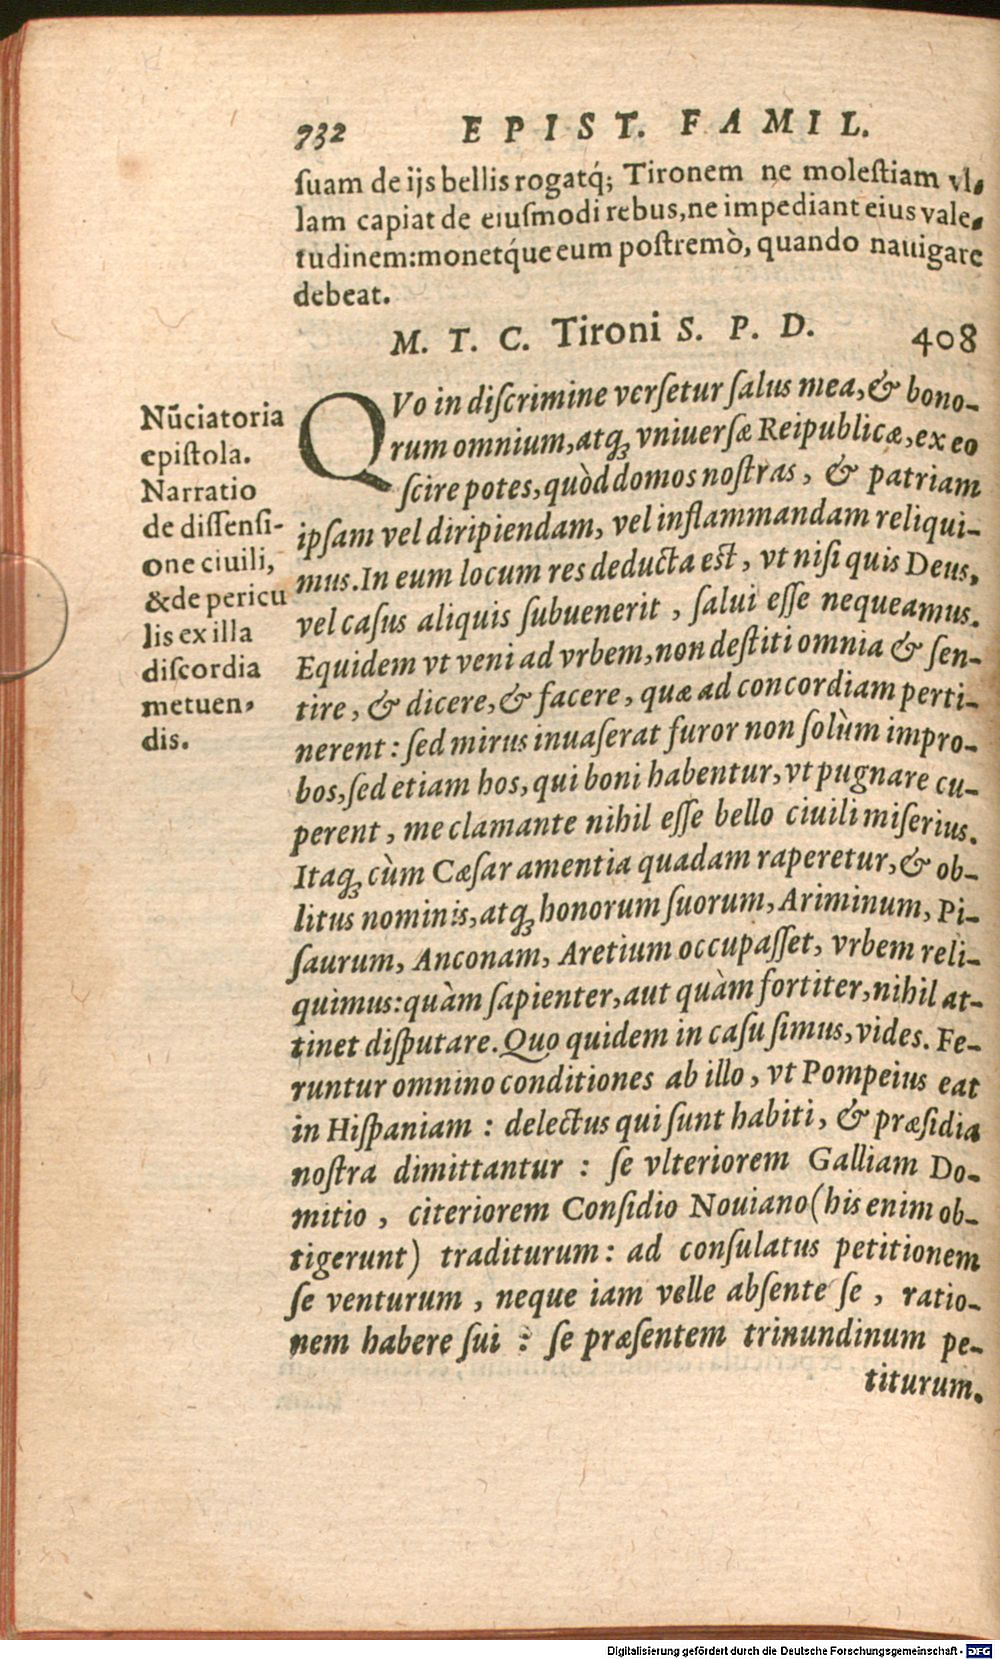 732 EPIST. FAMIL.
ſuam de ijs bellis rogatq́; Tironem ne moleſtiam vl-
lam capiat de eiuſmodi rebus, ne impediant eius vale-
tudinem: monetq́ue eum poſtremò, quando nauigare
debeat.
M. T. C. Tironi S. P. D. 408
QVo in diſcrimine verſetur ſalus mea, & bono-
rum omnium, atqꝫ vniuerſæ Reipublicæ, ex eo
ſcire potes, quòd domos noſtras, & patriam
ipſam vel diripiendam, vel inflammandam reliqui-
mus. In eum locum res deducta est, vt niſi quis Deus,
vel caſus aliquis ſubuenerit, ſalui eſſe nequeamus.
Equidem vt veni ad vrbem, non deſtiti omnia & ſen-
tire, & dicere, & facere, quæ ad concordiam perti-
nerent: ſed mirus inuaſerat furor non ſolùm impro-
bos, ſed etiam hos, qui boni habentur, vt pugnare cu-
perent, me clamante nihil eſſe bello ciuili miſerius.
Itaqꝫ cùm Cæſar amentia quadam raperetur, & ob-
litus nominis, atqꝫ honorum ſuorum, Ariminum, Pi-
ſaurum, Anconam, Aretium occupaſſet, vrbem reli-
quimus: quàm ſapienter, aut quàm fortiter, nihil at-
tinet diſputare. Quo quidem in caſu ſimus, vides. Fe-
runtur omnino conditiones ab illo, vt Pompeius eat
in Hiſpaniam: delectus qui ſunt habiti, & præſidia
noſtra dimittantur: ſe vlteriorem Galliam Do-
mitio, citeriorem Conſidio Nouiano (his enim ob-
tigerunt) traditurum: ad conſulatus petitionem
ſe venturum, neque iam velle abſente ſe, ratio-
nem habere ſui: ſe præſentem trinundinum pe-
titurum.
Nūciatoria
epiſtola.
Narratio
de diſſenſi-
one ciuili,
& de pericu
lis ex illa
diſcordia
metuen-
dis.
Digitalisierung gefördert durch die Deutsche Forschungsgemeinschaft - DFG